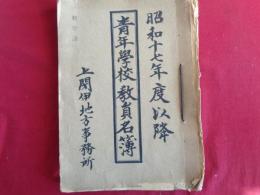 昭和十七年度以降
青年學校教員名簿
上閉伊地方事務所